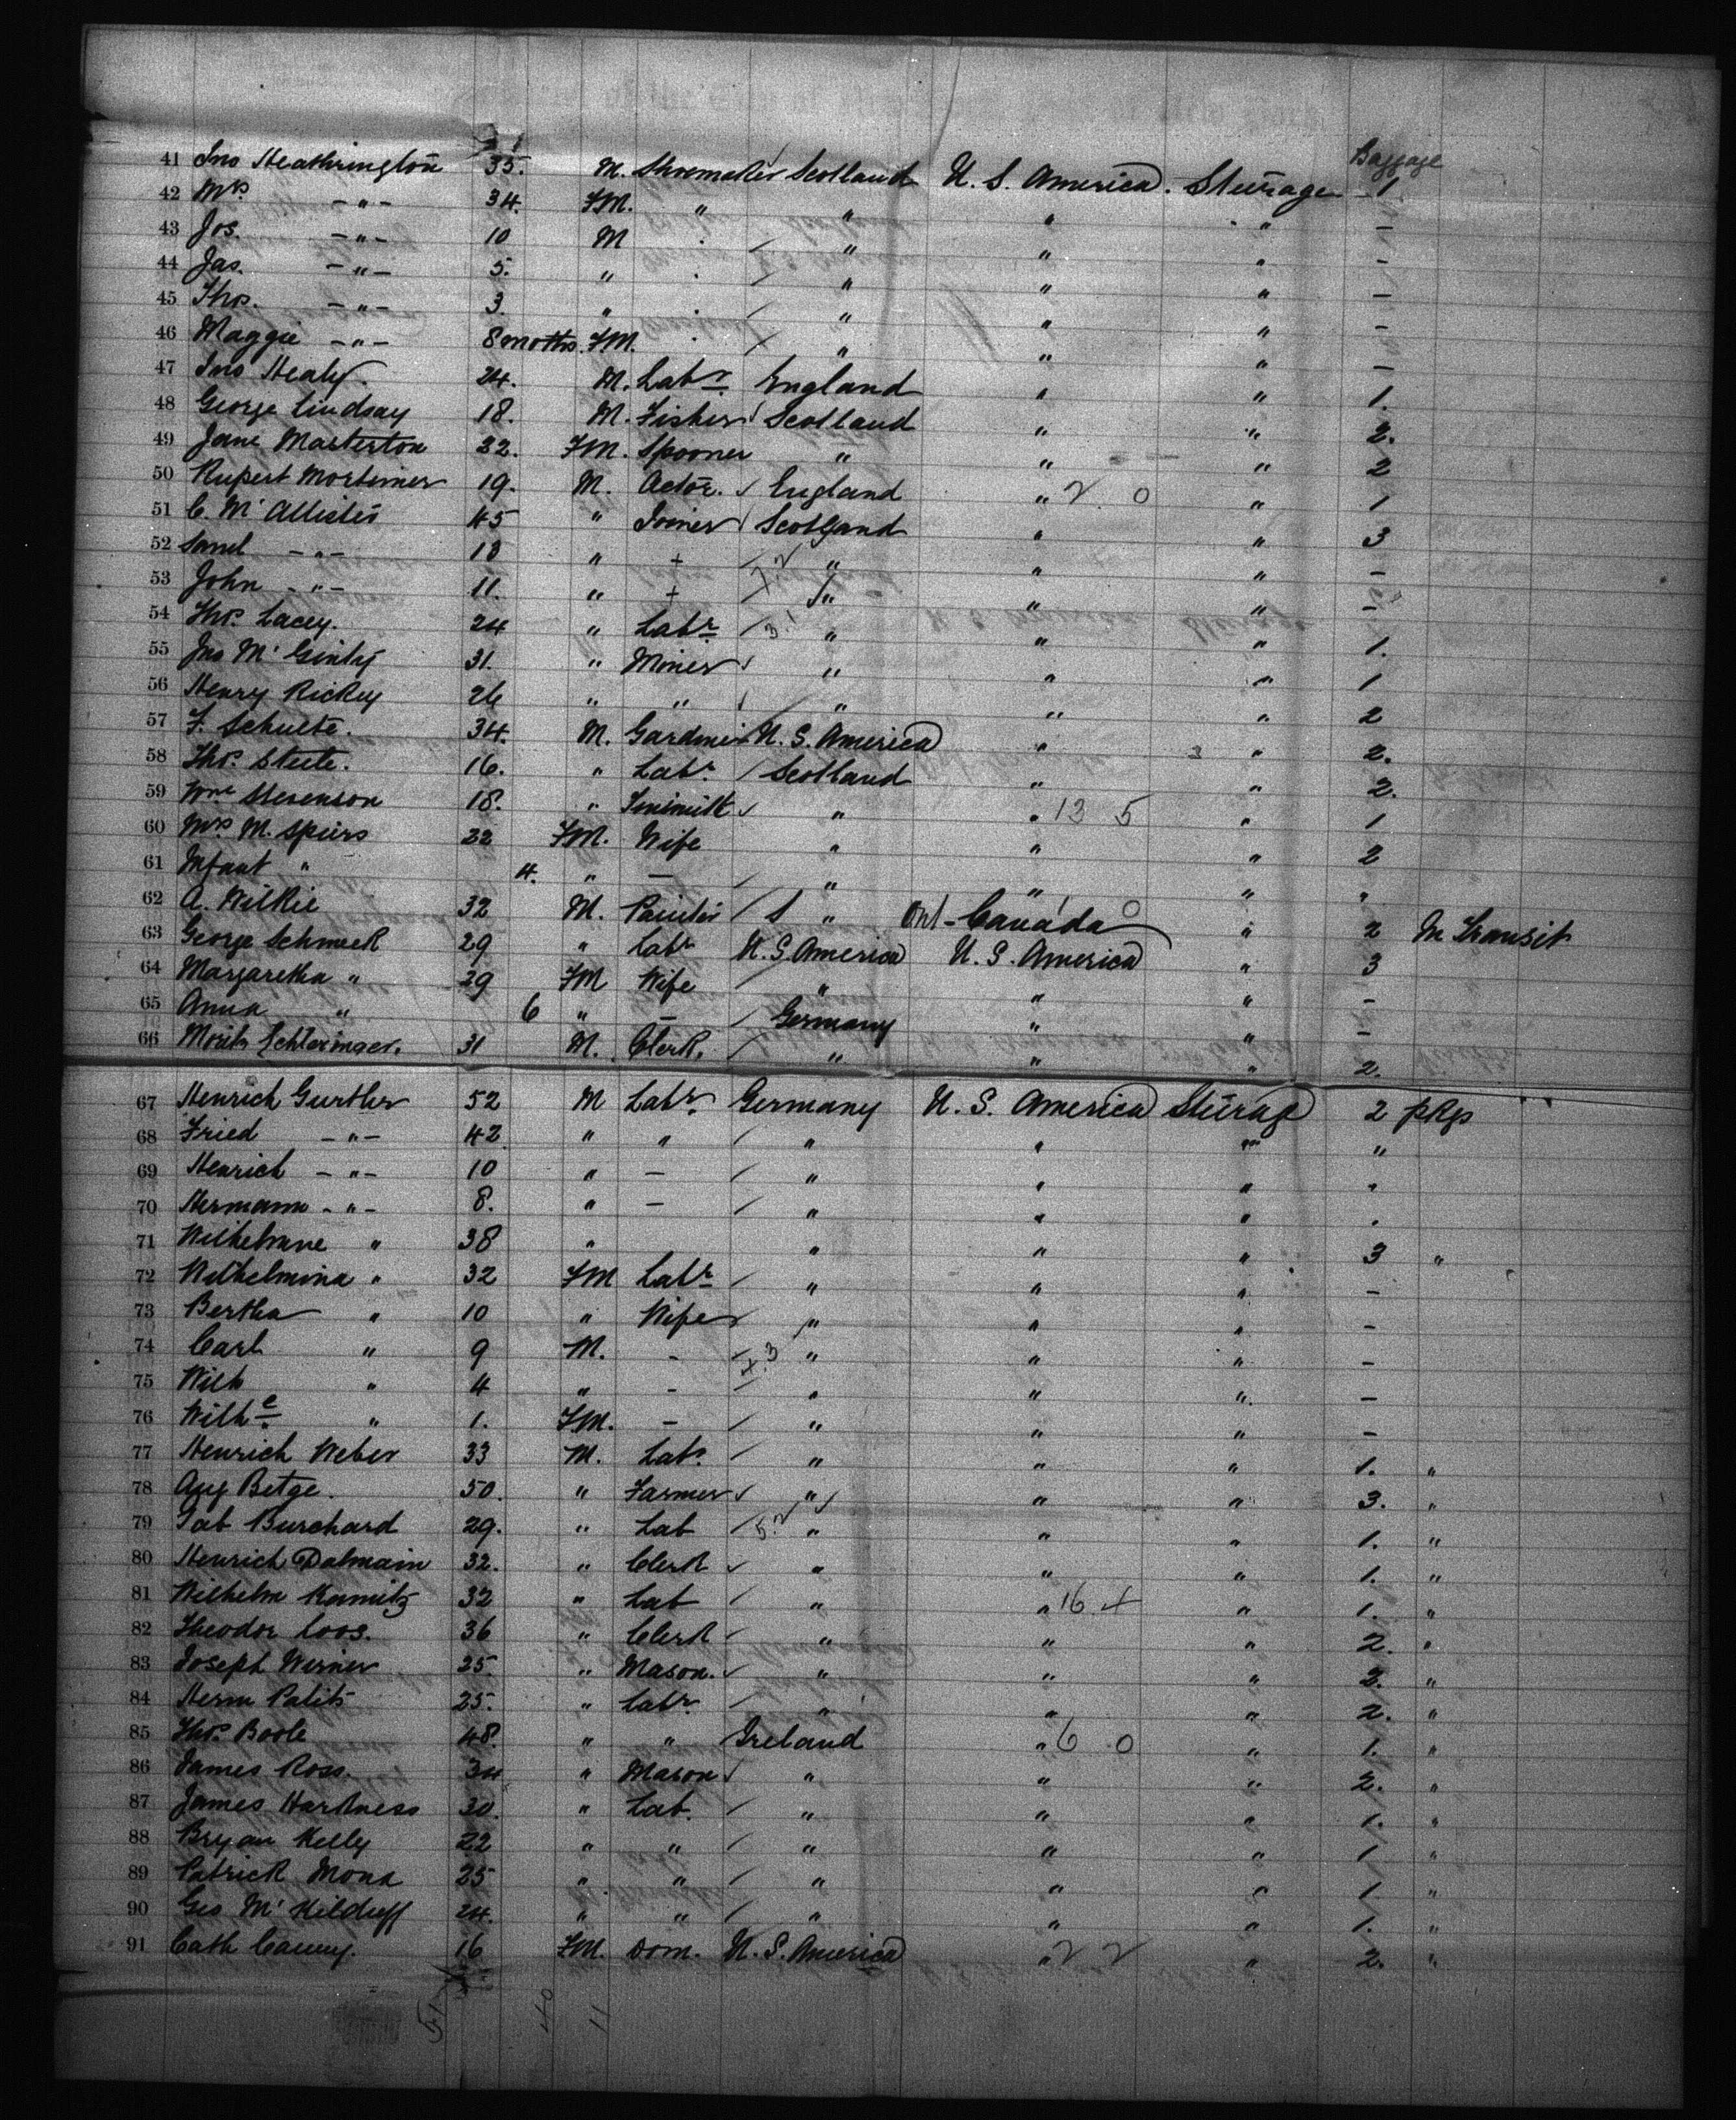 Baggage
41 Jno Heathrington 35. M. Shoemaker Scotland U. S. America. Steerage 1.
42 Mrs -"- 34. FM. " " " " -
43 Jos. -"- 10 M " " " -
44 Jas. -"- 5. " " " " -
45 Thos. -"- 3. " " " " -
46 Maggie -"- 8 moths. FM. " " " -
47 Jno Healy. 24. M. Labr England " " 1.
48 George Lindsay 18. M. Fisher Scotland " " 2.
49 Jane Masterton 22. FM. Spooner " " " 2
50 Rupert Mortimer 19. M. Actor. England " 2 0 " 1
51 C. McAllister 45 " Joiner Scotland " " 3
52 Saml -"- 18 " + " " " -
53 John -"- 11. " + " " " -
54 Thos. Lacey. 24 " Labr " " " 1.
55 Jno McGinty 31. " Miner " " " 1
56 Henry Rickey 26 " " " " " 2
57 F. Schulte. 34. M. Gardner U. S. America " " 2.
58 Thos. Steele. 16. " Labr. Scotland " " 2.
59 Wm Stevenson 18. " Tinsmith " " 13 5 " 1
60 Mrs M. Spiers 22 FM. Wife " " " 2
61 Infant " 4. " - " " " "
62 A. Wilkie 32 M. Painter " Ont- Canada " 2 In Transit
63 George Schmeck 29 " Labr U. S. America U. S. America " 3
64 Margaretha " 29 FM Wife " " " -
65 Anna " 6 " - Germany " " -
66 Moritz Schlesinger. 31 M. Clerk. " " " 2.
67 Henrich Gurtler 52 M Labr. Germany U. S. America Steerage 2 pkgs
68 Fried -"- 42. " " " " " "
69 Henrich -"- 10 " - " " " "
70 Hermann -"- 8. " - " " " "
71 Wilhelmine " 38 " " " " 3 "
72 Wilhelmina " 32 FM Labr " " " -
73 Bertha " 10 " Wife " " " -
74 Carl " 9 M. - " " " -
75 Wilh " 4 " - " " " -
76 Wilhe " 1. FM. - " " " -
77 Henrich Weber 33 M. Labr. " " " 1. "
78 Aug Betge. 50. " Farmer " " " 3. "
79 Burchard 29. " Lab " " " 1. "
80 Henrich Dalmain 32. " Clerk " " " 1. "
81 Wilhelm Kamitz 32 " Lab " " 16 4 " 1. "
82 Theodor Loos. 36 " Clerk " " " 2. "
83 Joseph Werner 25. " Mason. " " " 2. "
84 Herm Palitz 25. " Labr. " " " 2. "
85 Thos. Boole 48. " " Ireland " 6 0 " 1. "
86 James Ross. 34 " Mason " " " 2. "
87 James Harkness 30. " Lab. " " " 1. "
88 Bryan Kelly 22 " " " " " 1 "
89 Patrick Mona 25 " " " " " 1 "
90 Geo McKilduff 24. " " " " " 1. "
91 Cath Canny. 16 FM. Dom. U. S. America " 2 2 " 2. "
51 40 11